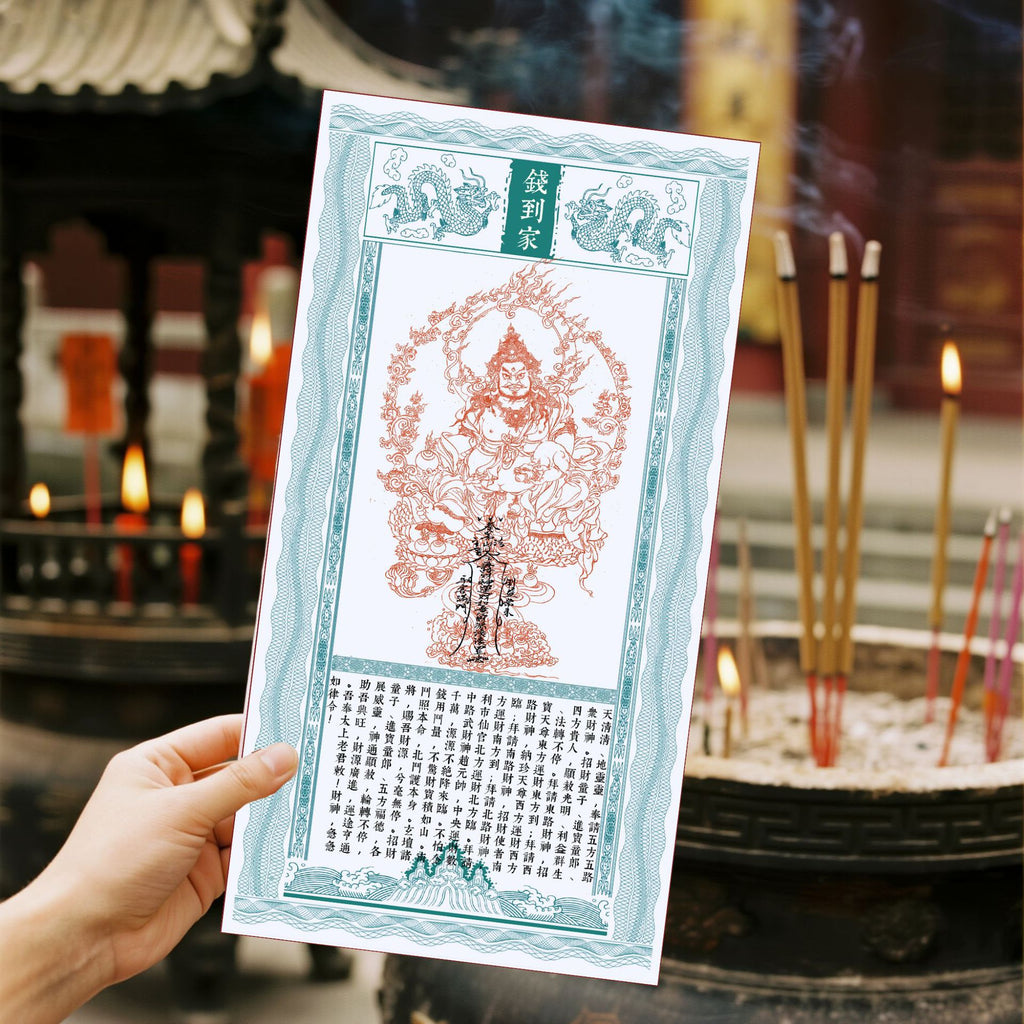 錢到家
天清清，地靈靈，奉請五方五路
衆財神。招財童子、進寶童郎、
四方貴人，願赦光明、利益群生
、法轉不停。拜請東路財神，招
寶天尊東方運財東方到；拜請西
路財神，納珍天尊西方運財西方
臨；拜請南路財神，招財使者南
方運財南方到；拜請北路財神，
利市仙官北方運財北方臨。拜請
中路武財神趙元帥，中央運財數
千萬，源源不絕降來臨。不怕
錢用鬥量，不驚財寶積如山。南
鬥照本命，北鬥護本身。玄壇諸
將，賜吾財源，兮毫無停。招財
童子、進寶童郎、五方福德，各
展威靈，神通願赦，輪轉不停，
助吾興旺，財源廣進，運途亨通
。吾奉太上老君敕！財神，急急
如律令！